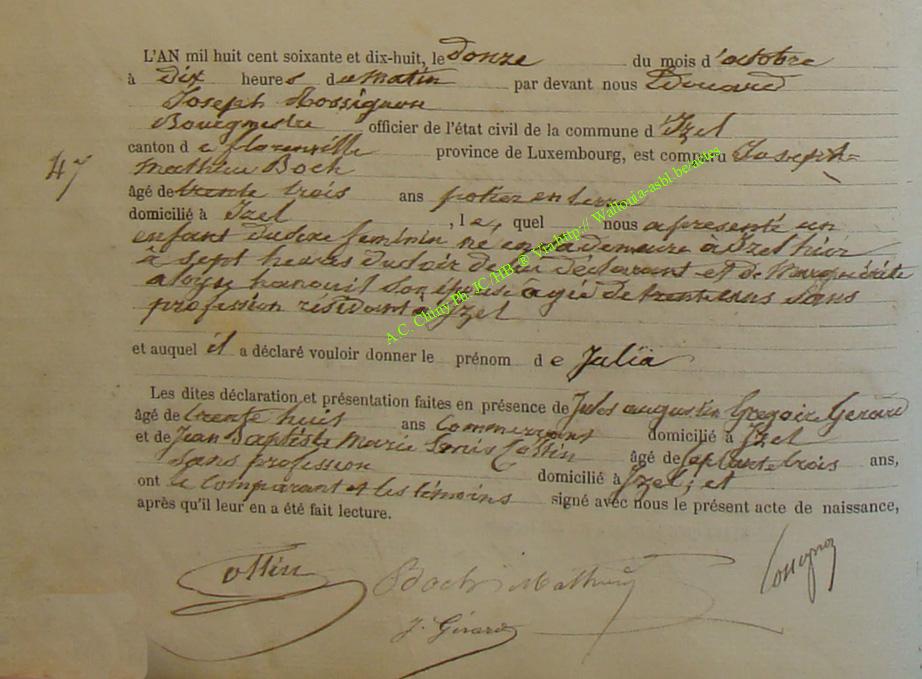 L'AN mil huit cent soixante et dix-huit, le Douze du mois d'octobre
à Dix heures du matin par devant nous Edouard
Joseph Rossignon
Bourgmestre officier de l'état civil de la commune d'Izel
canton de florenville province de Luxembourg, est comparu Joseph
47
Mathieu Boch
âgé de trente trois ans potier en terre
domicilié à Izel, le, quel nous a présenté un
enfant du sexe feminin né en sa demeure à Izel hier
à sept heures du soir de lui déclarant et de Marguérite
son épouse agée de trente sans
profession résidant à Izel
et auquel il a déclaré vouloir donner le prénom de Julïa
Les dites déclaration et présentation faites en présence de Jules augustin Gregoire Gerard
âgé de trente huit ans Commerçant domicilié à Izel
et de Jean Baptiste Marie Louis Cottin âgé de septante trois ans,
sans profession domicilié à Izel; et
ont le comparant et les témoins signé avec nous le présent acte de naissance,
après qu'il leur en a été fait lecture.
Cottin Boch Mathieu
J. Gérard
A.C. Chiny Ph. JC /HB ® Via http:// Wallonia-asbl.be/actes